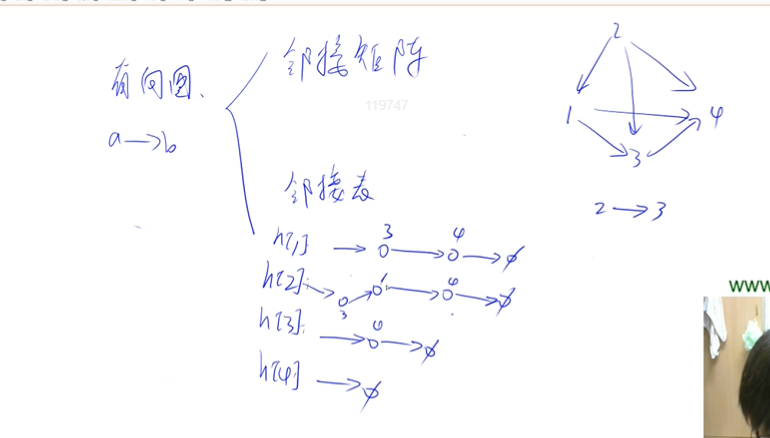 有向图、
a→b
邻接矩阵
119747
邻接表
h[1] → 3 → 4 → ∅
h[2] → 3 → 1 → 4 → ∅
h[3] → 4 → ∅
h[4] → ∅
2
1
4
3
2→3
www